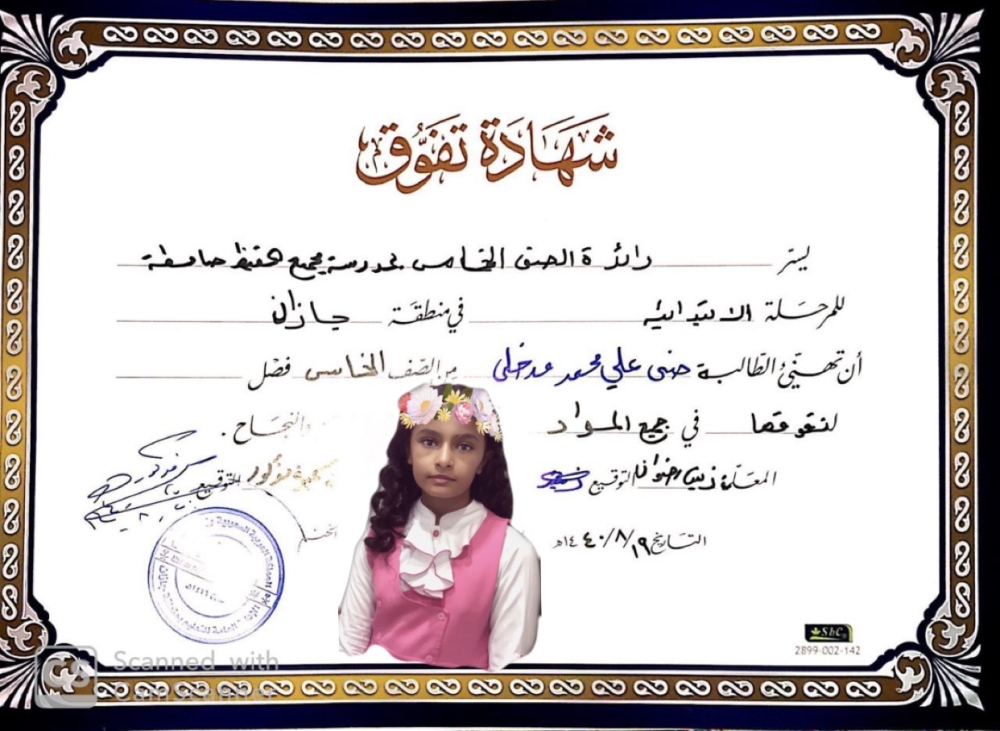 شَهَادَة تَفَوُّق
يسّر رائدة الصف الخامس بمدرسة مجمع حفيظ حامضة
للمرحلة الابتدائية في منطقة جازان
أن تهنّئ الطالبة منى علي محمد مدخلي من الصّف الخامس فصل
لتفوقها في جميع المواد والنجاح .
المعلّمة زينب رضوان التوقيع التوقيع
التّاريخ ١٩/٨/١٤٤٠هـ
SbC
2899-002-142
Scanned with
CamScanner